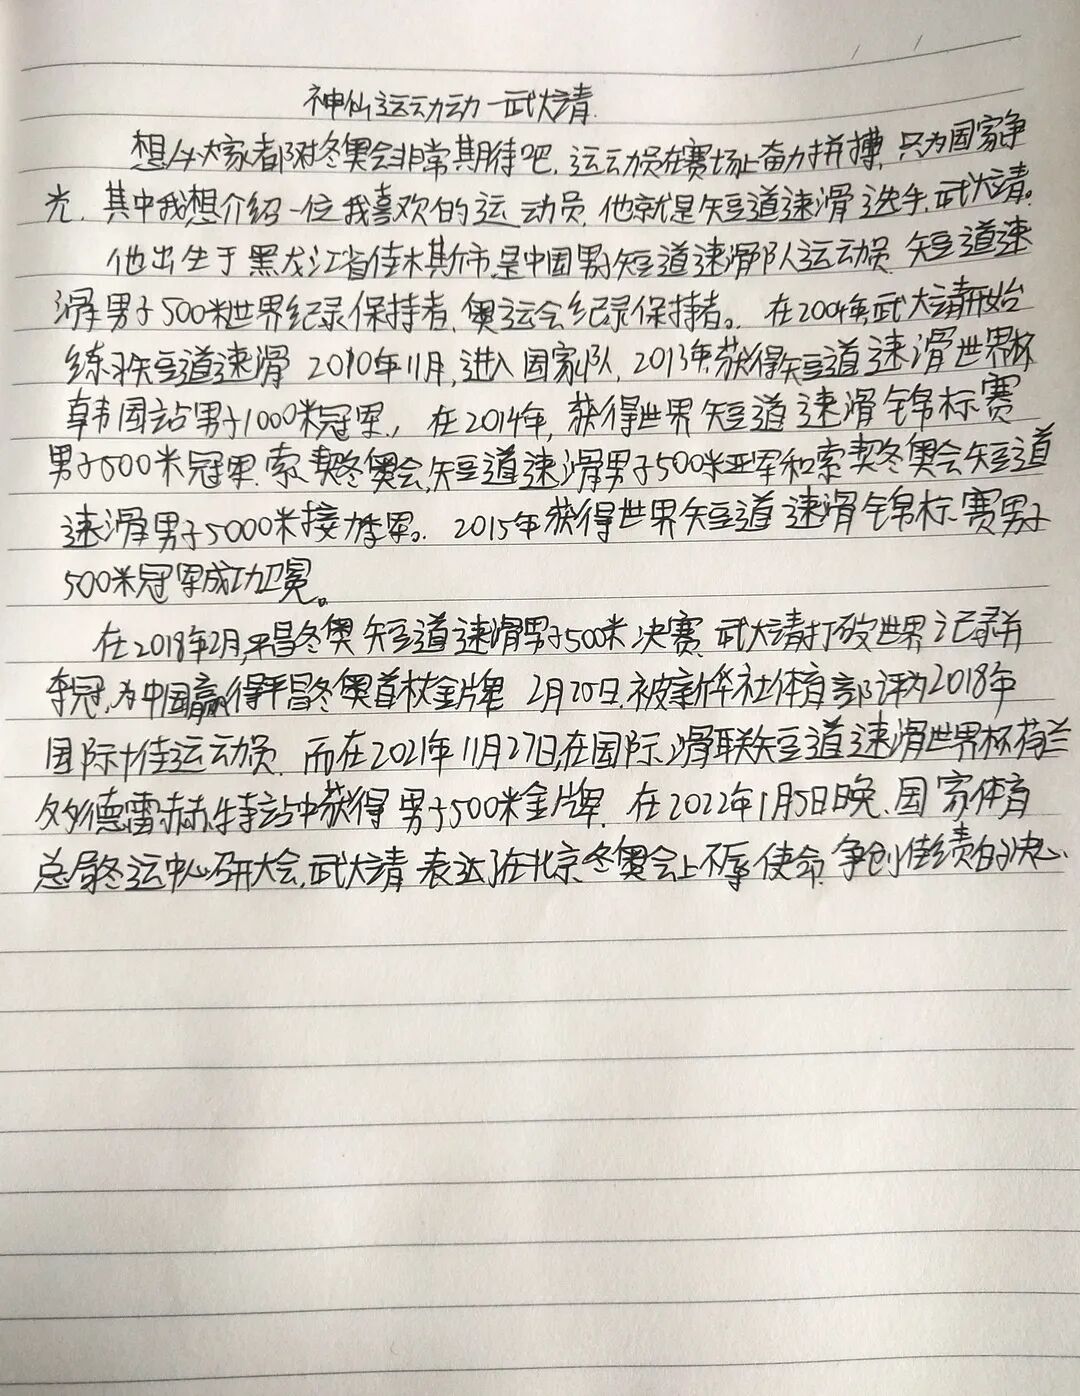 神仙运动动一武大靖.
想必大家都对冬奥会非常期待吧,运动员在赛场上奋力拼搏,只为国家争
光.其中我想介绍一位我喜欢的运动员,他就是短道速滑选手,武大靖。
他出生于黑龙江省佳木斯市,是中国男子短道速滑队运动员 短道速
滑男子500米世界纪录保持者,奥运会纪录保持者。在2004年,武大靖开始
练习短道速滑 2010年11月,进入国家队,2013年,获得短道速滑世界杯
韩国站男子1000米冠军,在2014年,获得世界短道速滑锦标赛
男子500米冠军.索契冬奥会,短道速滑男子500米亚军和索契冬奥会短道
速滑男子5000米接力季军。2015年获得世界短道速滑锦标赛男子
500米冠军成功卫冕。
在2018年2月,平昌冬奥短道速滑男子500米决赛 武大靖打破世界记录并
夺冠,为中国赢得平昌冬奥首枚金牌 2月25日,被新华社体育部评为2018年
国际十佳运动员.而在2021年11月27日,在国际滑联短道速滑世界杯荷兰
多德雷赫特站中获得男子500米金牌.在2022年1月5日晚,国家体育
总局冬运中心研大会,武大靖表达了在北京冬奥会上不辱使命,争创佳绩的决心